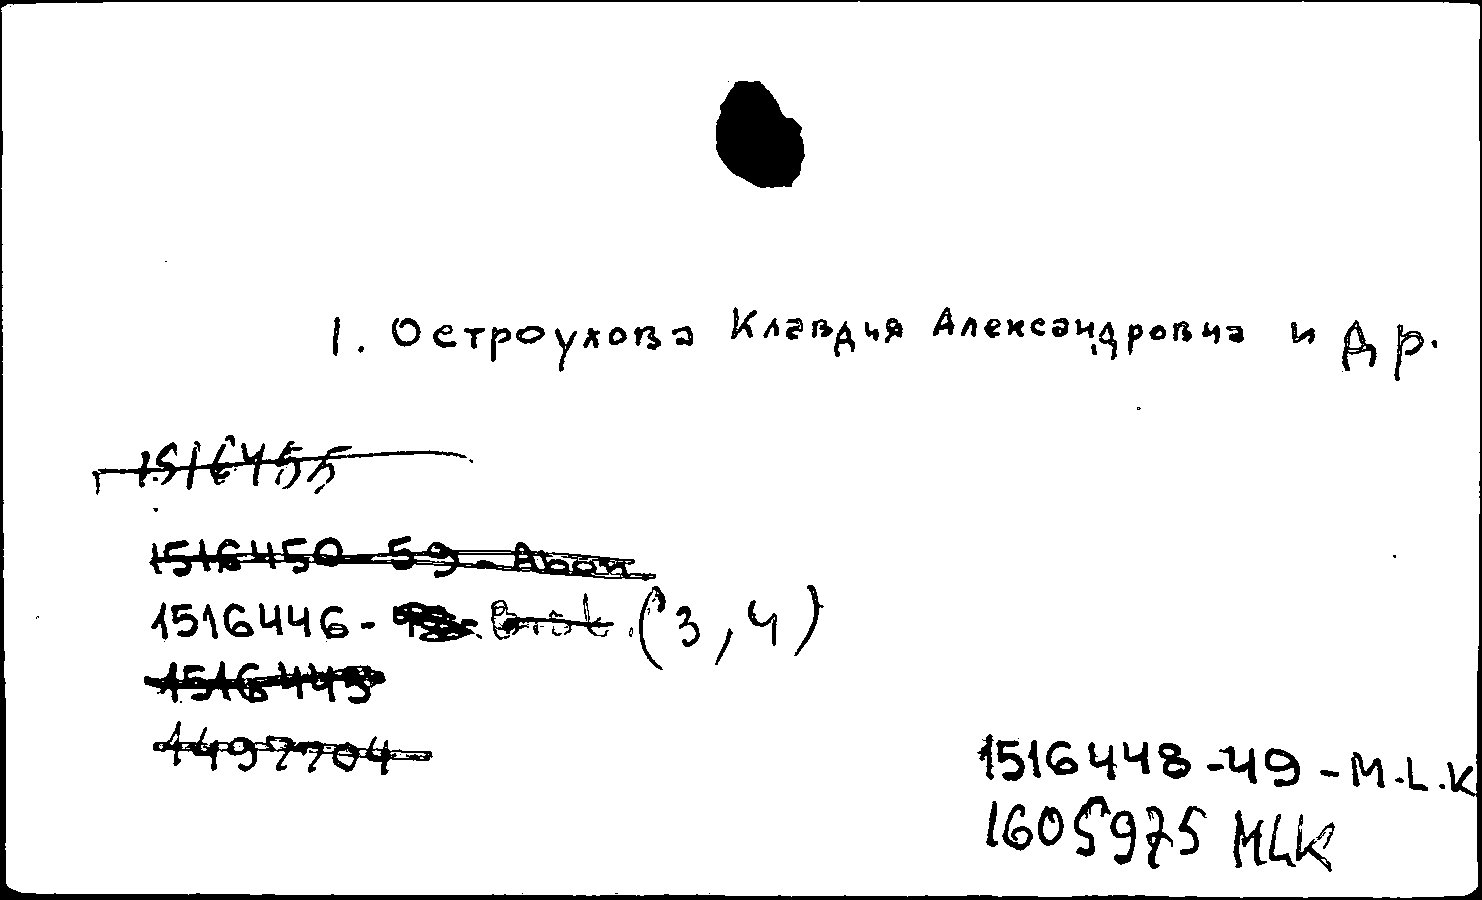 1. Остроухова Клавдия Александровна и др.
1516455
1516450-59-Абон.
1516446- (3,4)
1516445
1497704
1516448-49-M.L.K
1605975 MLK